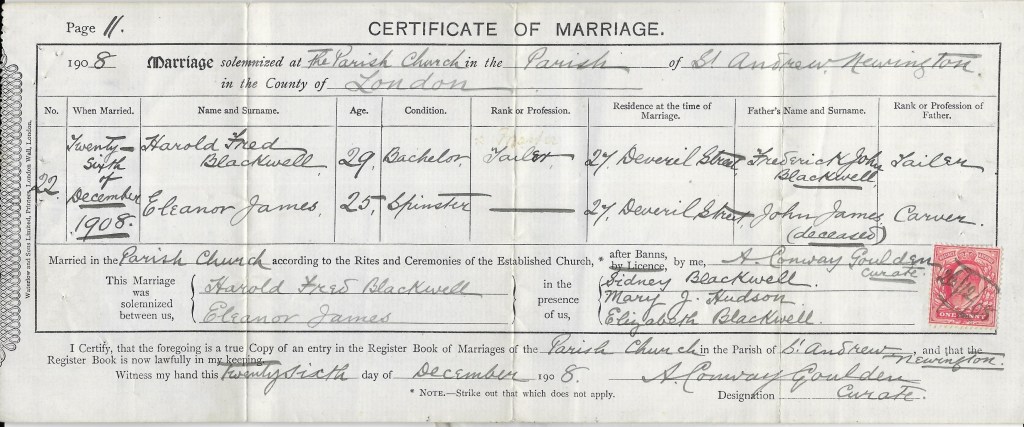 Page 11.
CERTIFICATE OF MARRIAGE.
1908 Marriage solemnized at The Parish Church in the Parish of St Andrew, Newington.
in the County of London
No. When Married. Name and Surname. Age. Condition. Rank or Profession. Residence at the time of Marriage. Father's Name and Surname. Rank or Profession of Father.
22. Twenty-Sixth of December 1908.
Harold Fred Blackwell 29, Bachelor Tailer 27, Deveril Street, Frederick John Blackwell, Tailer
Eleanor James, 25, Spinster 27, Deveril Street, John James, (deceased) Carver
Married in the Parish Church according to the Rites and Ceremonies of the Established Church, * after Banns, by Licence, by me, A. Conway Goulden Curate.
This Marriage was solemnized between us, Harold Fred Blackwell
Eleanor James
in the presence of us, Sidney Blackwell
Mary J. Hudson
Elizabeth Blackwell.
ONE PENNY
I Certify, that the foregoing is a true Copy of an entry in the Register Book of Marriages of the Parish Church in the Parish of St Andrew Newington. and that the
Register Book is now lawfully in my keeping.
Witness my hand this twenty sixth day of December 1908. A. Conway Goulden
* NOTE.—Strike out that which does not apply.
Designation Curate.
Waterlow and Sons Limited, Printers, London Wall, London.